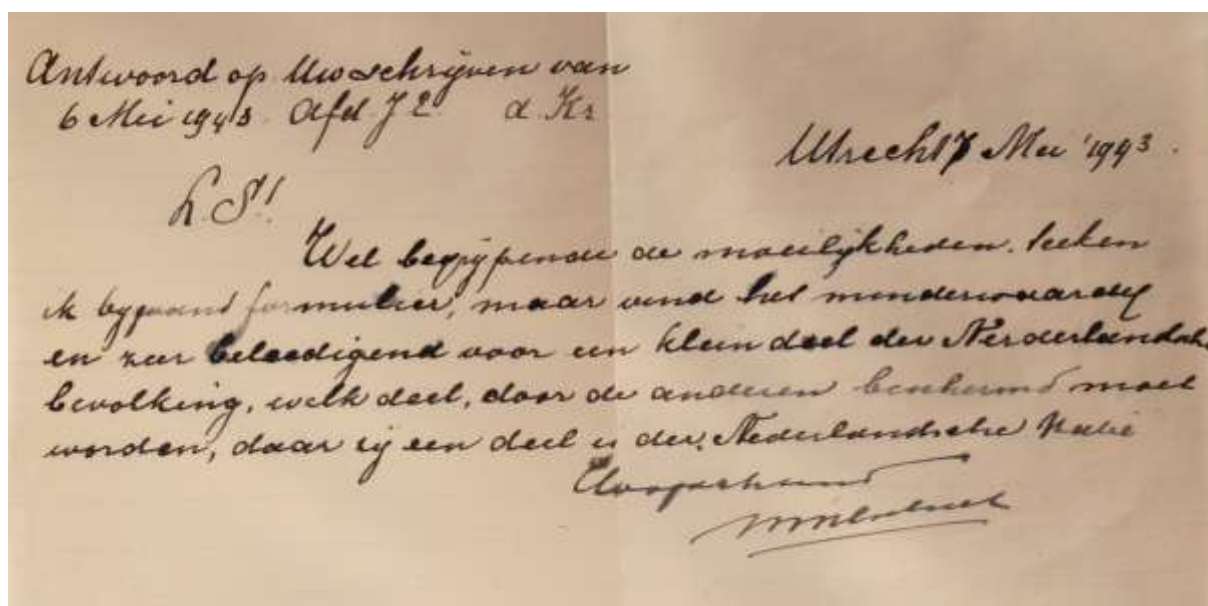 Antwoord op Uw schrijven van
6 Mei 1943. Afd J 2. a. Kr
Utrecht 7 Mei '1943.
L. S!
Wel begrijpende de moeilijkheden. teeken
ik bygaand formulier, maar vind het minderwaardig
en zeer beleedigend voor een klein deel der Nederlandsche
bevolking, welk deel, door de anderen beschermd moet
worden, daar zy een deel is der Nederlandsche Natie
Hoogachtend